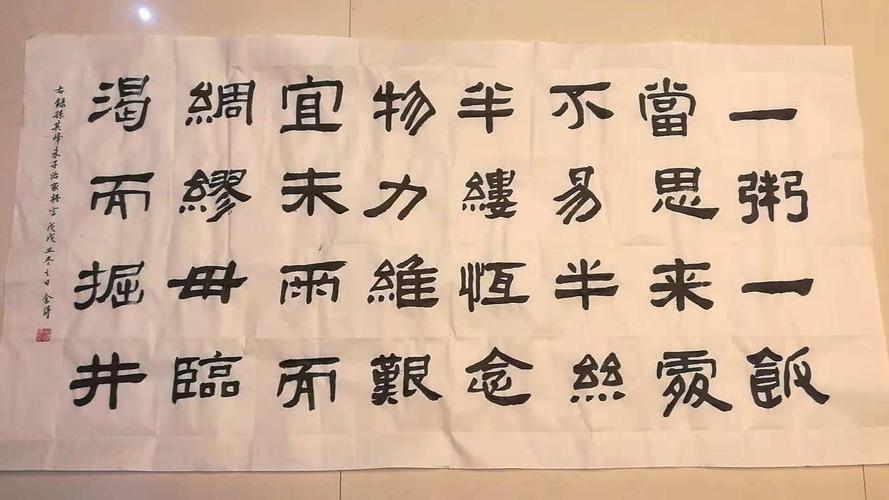 一粥一飯
當思来處
不易半絲
半縷恆念
物力維艱
宜未雨而
綢繆毋臨
渴而掘井
右錄孫其峰朱子治家格言 戊戌立冬之日